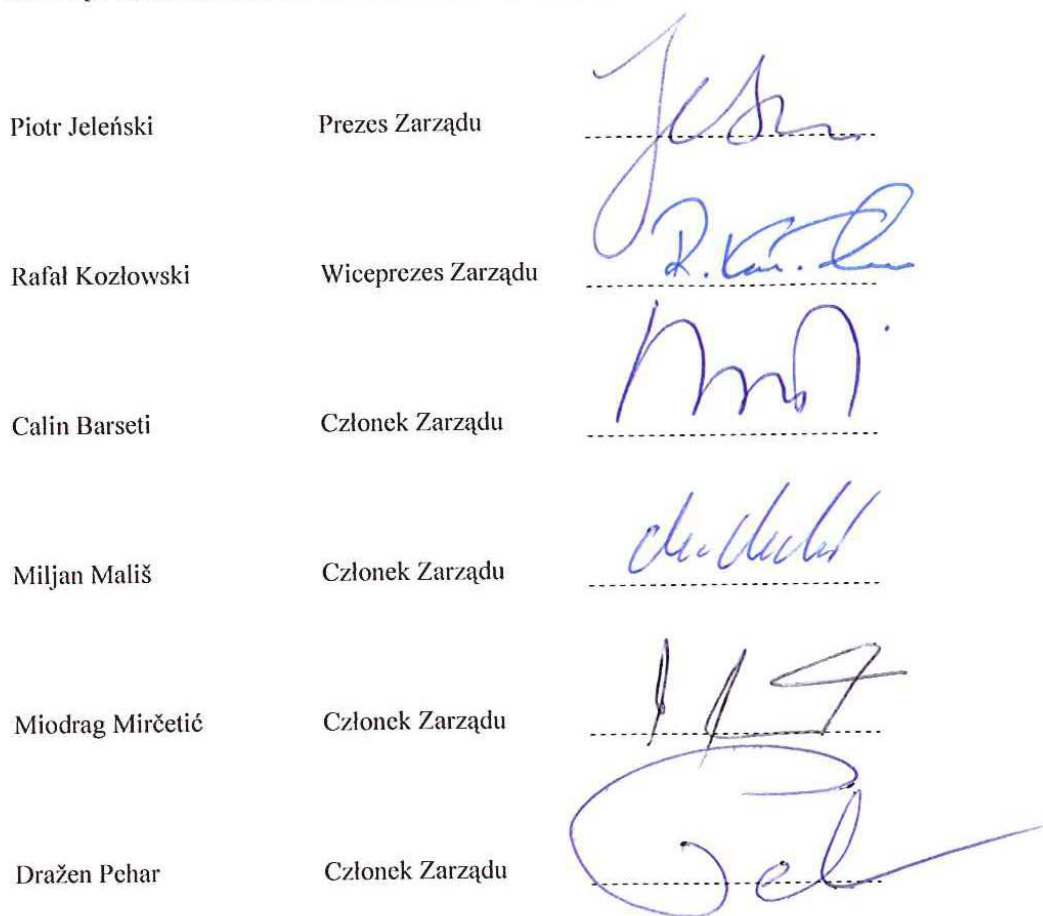 Piotr Jeleński Prezes Zarządu
Rafał Kozłowski Wiceprezes Zarządu
R.
Calin Barseti Członek Zarządu
Miljan Mališ Członek Zarządu
Miodrag Mirčetić Członek Zarządu
Dražen Pehar Członek Zarządu